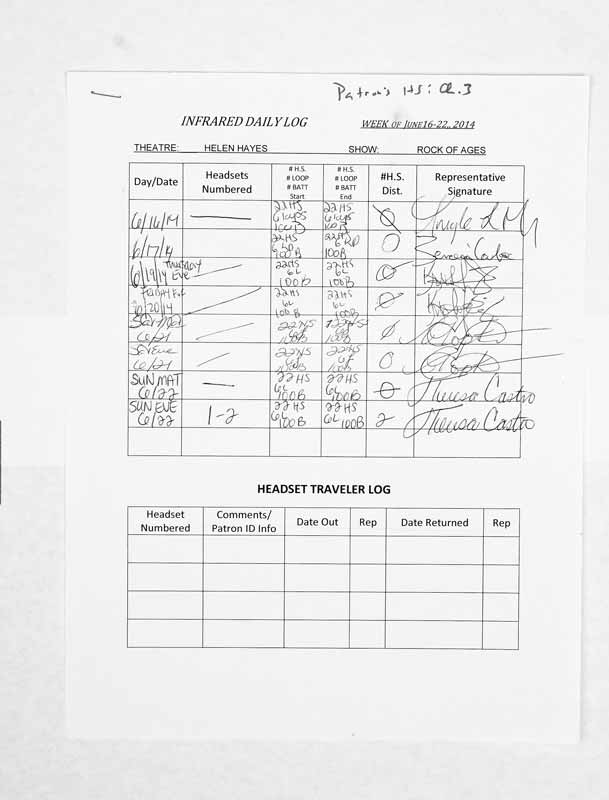 Patron's HS: Ch.3
INFRARED DAILY LOG WEEK OF JUNE16-22, 2014
THEATRE: HELEN HAYES SHOW: ROCK OF AGES
Day/Date Headsets Numbered # H.S. # LOOP # BATT Start # H.S. # LOOP # BATT End #H.S. Dist. Representative Signature
6/16/14 — 22HS 6 loops 100B 22HS 6 loops 100B Ø
6/17/14 22HS 6 LP 100B 22HS 6 LP 100B 0
6/19/14 Thursday Eve — 22HS 6L 100B 22HS 6L 100B Ø
Friday Eve 6/20/14 — 22HS 6L 100B 22HS 6L 100B Ø
Sat Mat 6/21 — 22HS 6L 100B 22HS 6L 100B Ø
6/21 — 22HS 6L 100B 22HS 6L 100B 0
SUN MAT 6/22 — 22HS 6L 100B 22HS 6L 100B Ø Theresa Castro
SUN EVE 6/22 1-2 22HS 6L 100B 22HS 6L 100B 2 Theresa Castro
HEADSET TRAVELER LOG
Headset Numbered Comments/ Patron ID Info Date Out Rep Date Returned Rep